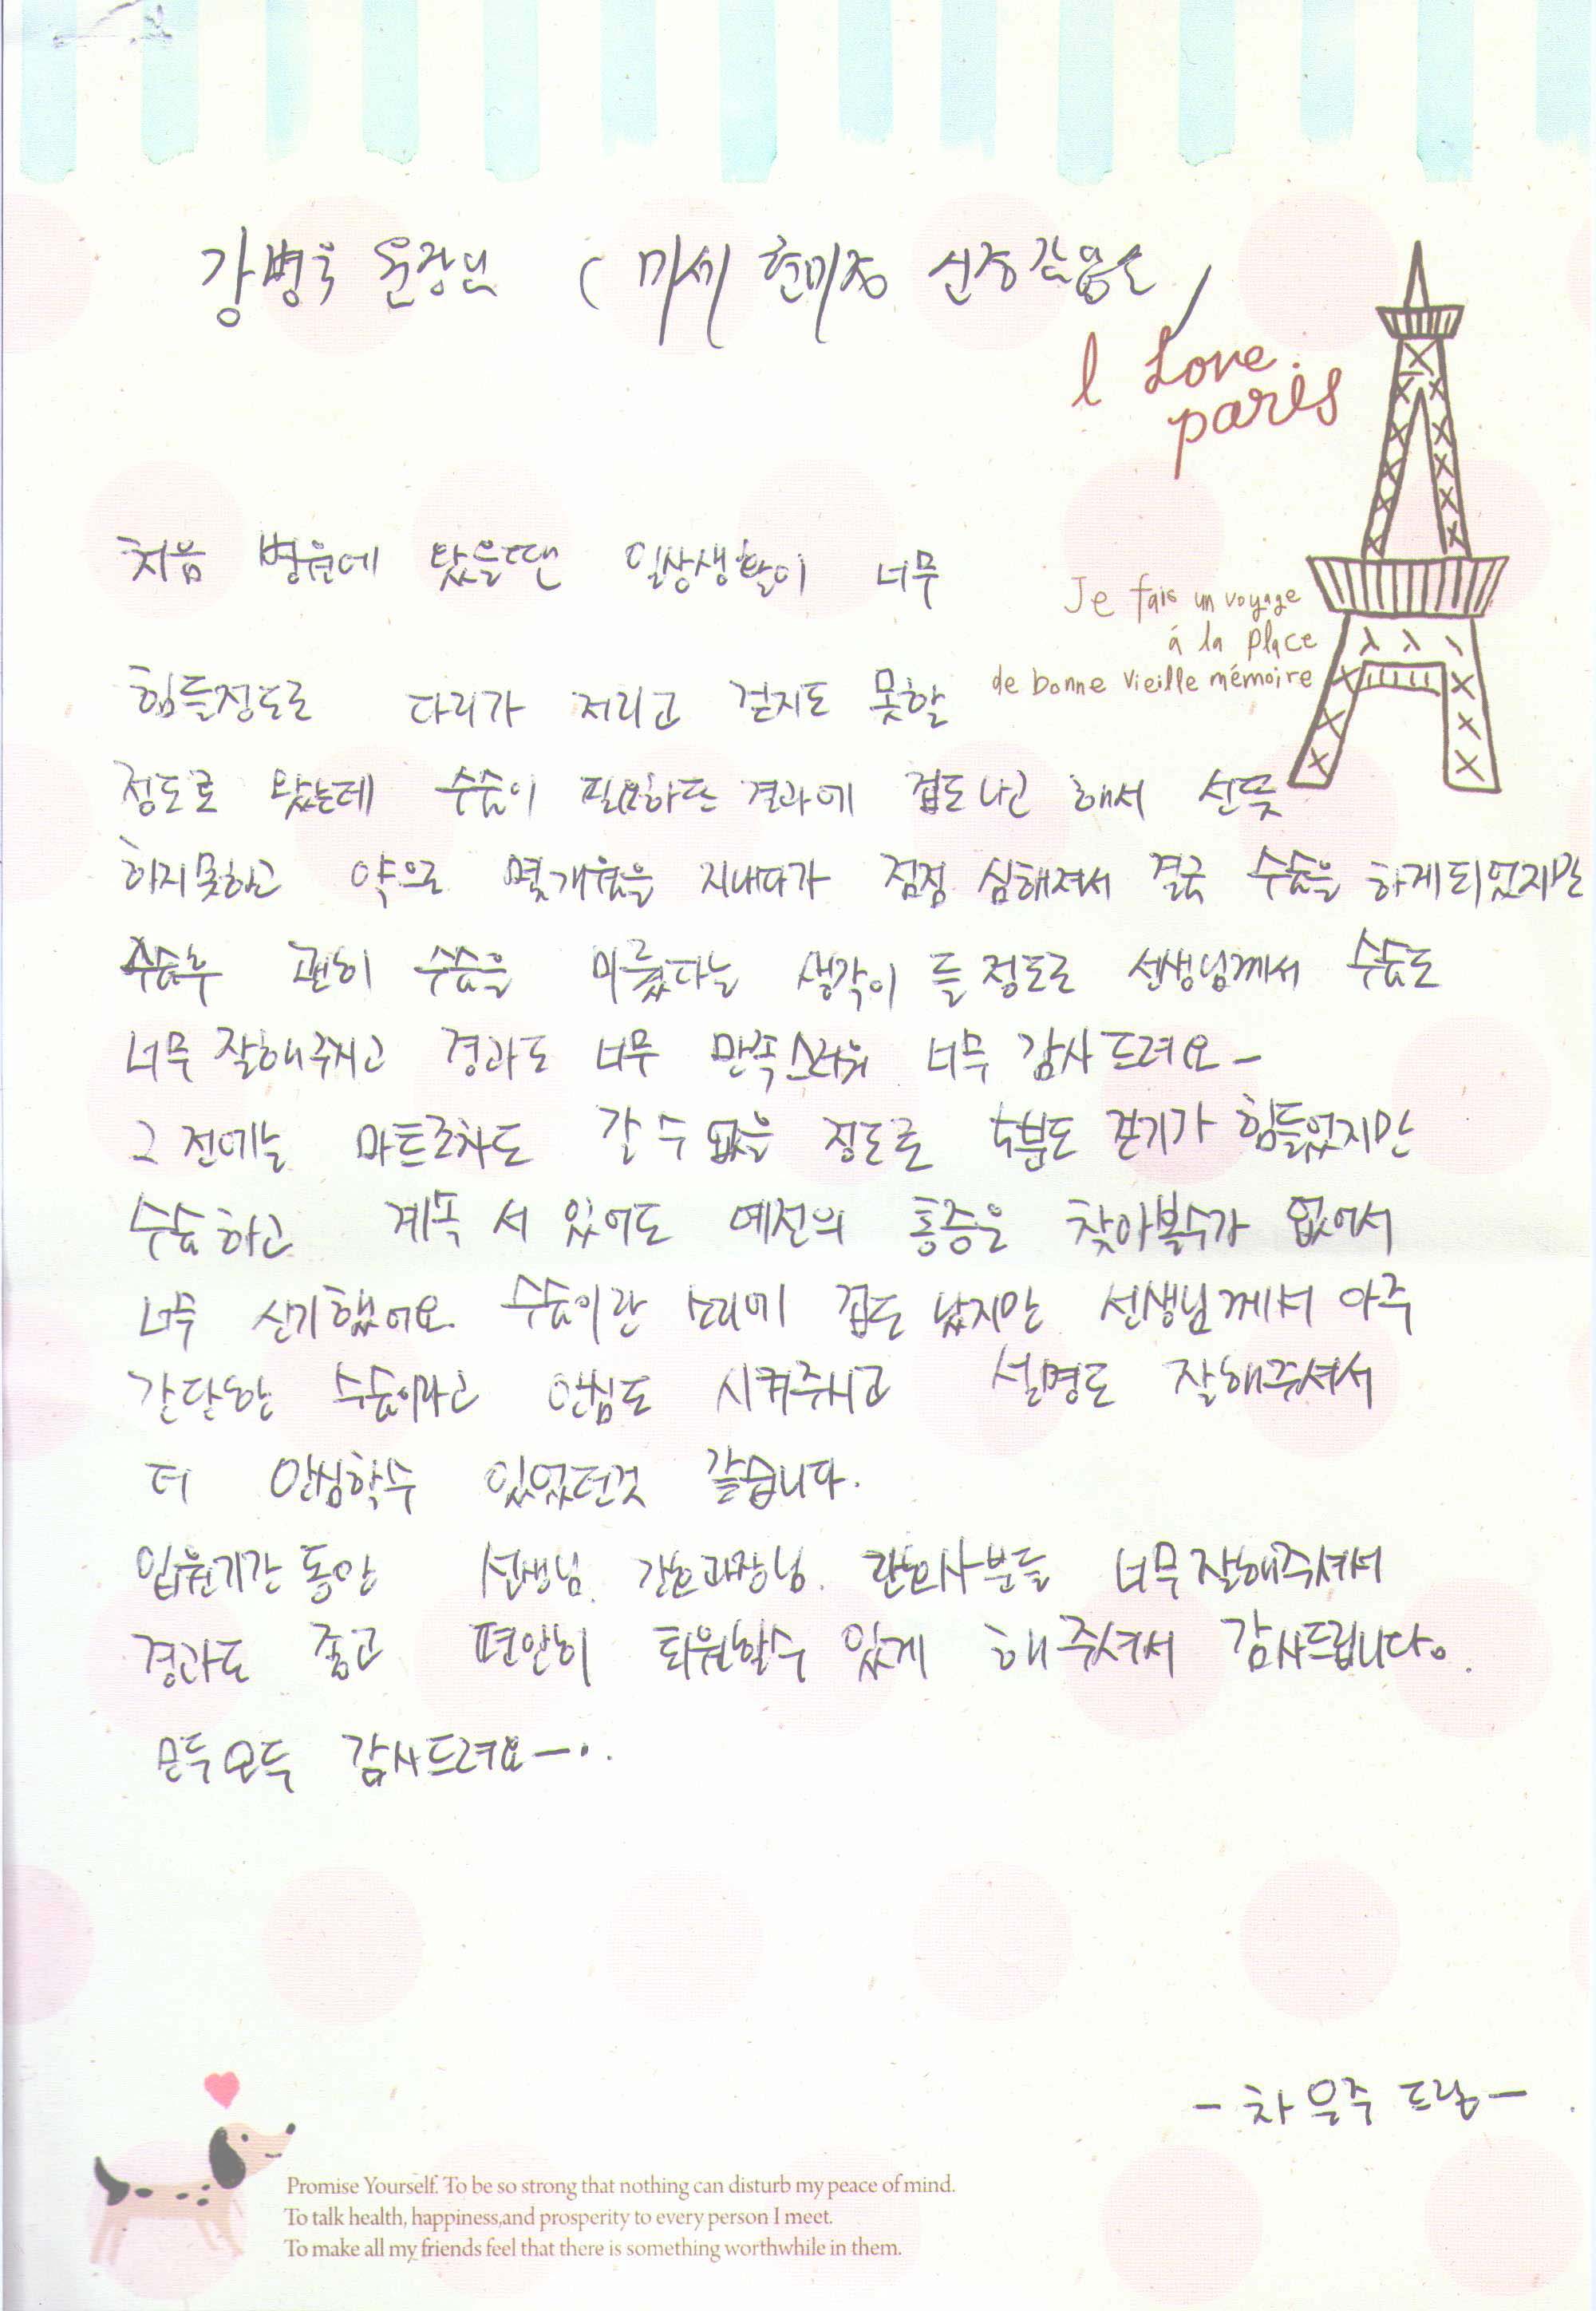 강병욱 원장님 ( 미세 현미경 신경감압술 )
I Love.
paris
처음 병원에 왔을땐 일상생활이 너무
Je fais un voyage
á la place
de bonne vieille mémoire
힘들정도로 다리가 저리고 걷지도 못할
정도로 왔는데 수술이 필요하단 결과에 겁도나고 해서 선뜻
하지못하고 약으로 몇개월을 지내다가 점점 심해져서 결국 수술을 하게되었지만
수술후 괜히 수술을 미뤘다는 생각이 들 정도로 선생님께서 수술도
너무 잘해주시고 경과도 너무 만족스러워 너무 감사드려요-
그 전에는 마트조차도 갈 수 없을 정도로 5분도 걷기가 힘들었지만
수술하고 계속 서 있어도 예전의 통증은 찾아볼수가 없어서
너무 신기했어요. 수술이란 소리에 겁도 났지만 선생님께서 아주
간단한 수술이라고 안심도 시켜주시고 설명도 잘해주셔서
더 안심할수 있었던것 같습니다.
입원기간 동안 선생님. 간호과장님. 간호사분들 너무잘해주셔서
경과도 좋고 편안히 퇴원할수 있게 해주셔서 감사드립니다.
모두모두 감사드려요-..
- 차은주 드림 -
Promise Yourself. To be so strong that nothing can disturb my peace of mind.
To talk health, happiness,and prosperity to every person I meet.
To make all my friends feel that there is something worthwhile in them.